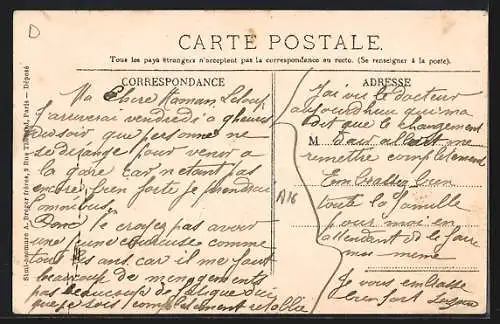 D
CARTE POSTALE.
Tous les pays étrangers n'acceptent pas la correspondance au recto. (Se renseigner à la poste).
CORRESPONDANCE
Ma Chere Maman
J'arriverai vendredi a 9 heures
du soir que personne ne
se dérange pour venir a
la gare car n'etant pas
encore bien forte je prendrai
l'omnibus
Donc ne croyez pas avoir
une jeune comme
tous les ans car il me faut
beaucoup de menagements
pas beaucoup de fatigue
je sois completement retablie
A16
ADRESSE
J'ai vu le docteur
aujourdhui qui m'a
dit que le changement
M dair allait me
remettre completement
Embrassez bien
toute la famille
pour moi en
attendant de le faire
moi meme
Je vous embrasse
bien fort
Simi-bromure A. Breger Frères, 9 Rue Thénard, Paris — Déposé